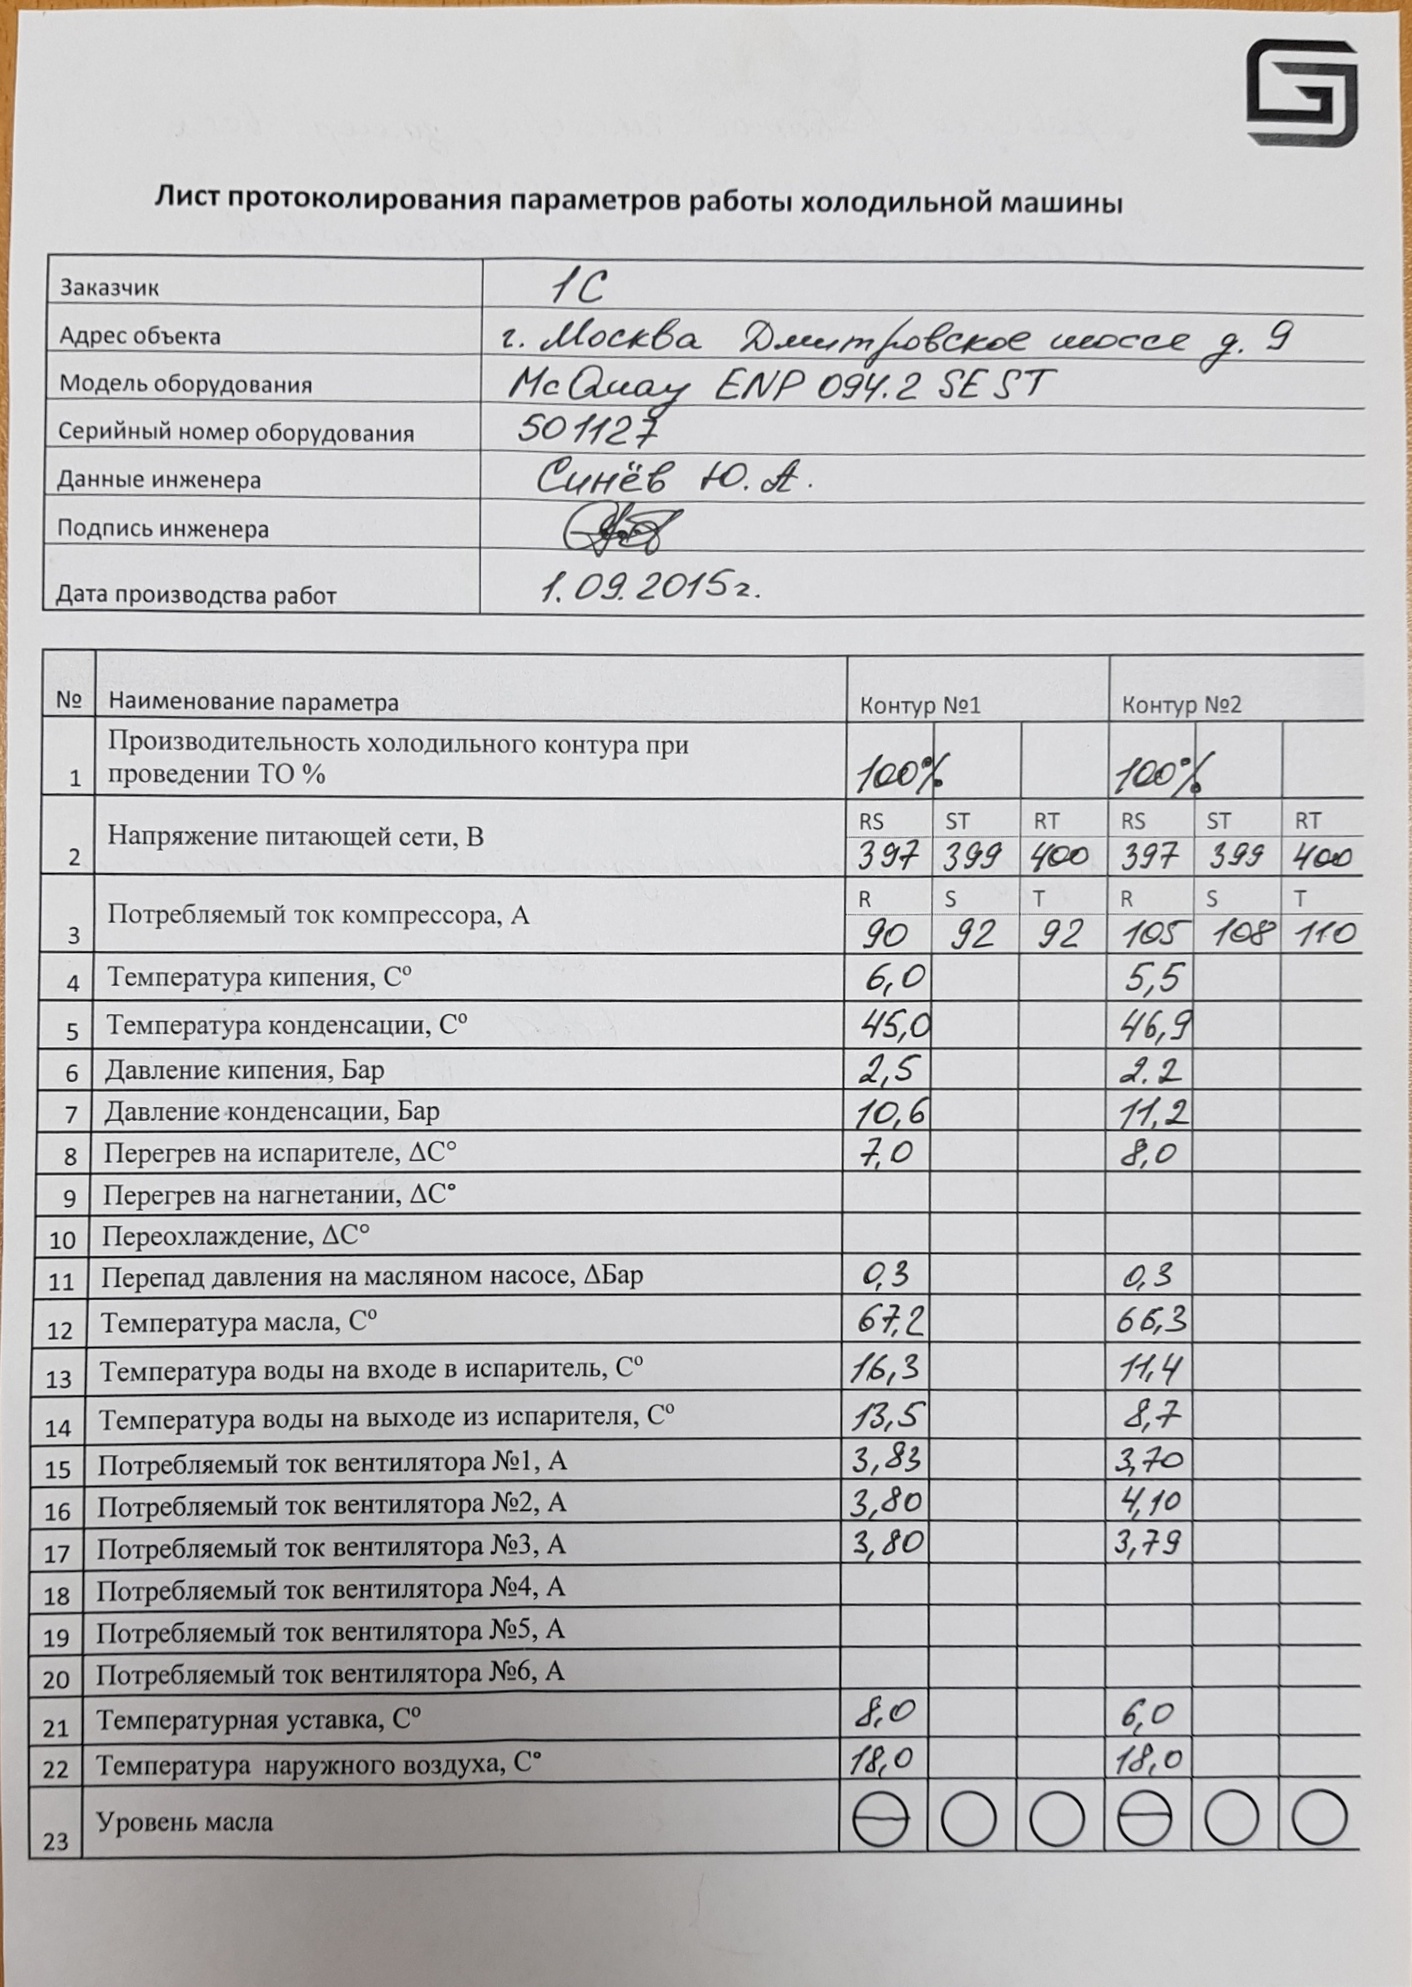 Лист протоколирования параметров работы холодильной машины
Заказчик 1С
Адрес объекта г. Москва Дмитровское шоссе д. 9
Модель оборудования McQuay ENP 094.2 SE ST
Серийный номер оборудования 501127
Данные инженера Синёв Ю. А.
Подпись инженера
Дата производства работ 1.09.2015г.
№ Наименование параметра Контур №1 Контур №2
1 Производительность холодильного контура при
проведении ТО % 100% 100%
RS ST RT RS ST RT
2 Напряжение питающей сети, В 397 399 400 397 399 400
R S T R S T
3 Потребляемый ток компрессора, А 90 92 92 105 108 110
4 Температура кипения, С° 6,0 5,5
5 Температура конденсации, С° 45,0 46,9
6 Давление кипения, Бар 2,5 2.2
7 Давление конденсации, Бар 10,6 11,2
8 Перегрев на испарителе, ΔС° 7,0 8,0
9 Перегрев на нагнетании, ΔС°
10 Переохлаждение, ΔС°
11 Перепад давления на масляном насосе, ΔБар 0,3 0,3
12 Температура масла, С° 67,2 66,3
13 Температура воды на входе в испаритель, С° 16,3 11,4
14 Температура воды на выходе из испарителя, С° 13,5 8,7
15 Потребляемый ток вентилятора №1, А 3,83 3,70
16 Потребляемый ток вентилятора №2, А 3,80 4,10
17 Потребляемый ток вентилятора №3, А 3,80 3,79
18 Потребляемый ток вентилятора №4, А
19 Потребляемый ток вентилятора №5, А
20 Потребляемый ток вентилятора №6, А
21 Температурная уставка, С° 8,0 6,0
22 Температура наружного воздуха, С° 18,0 18,0
23 Уровень масла